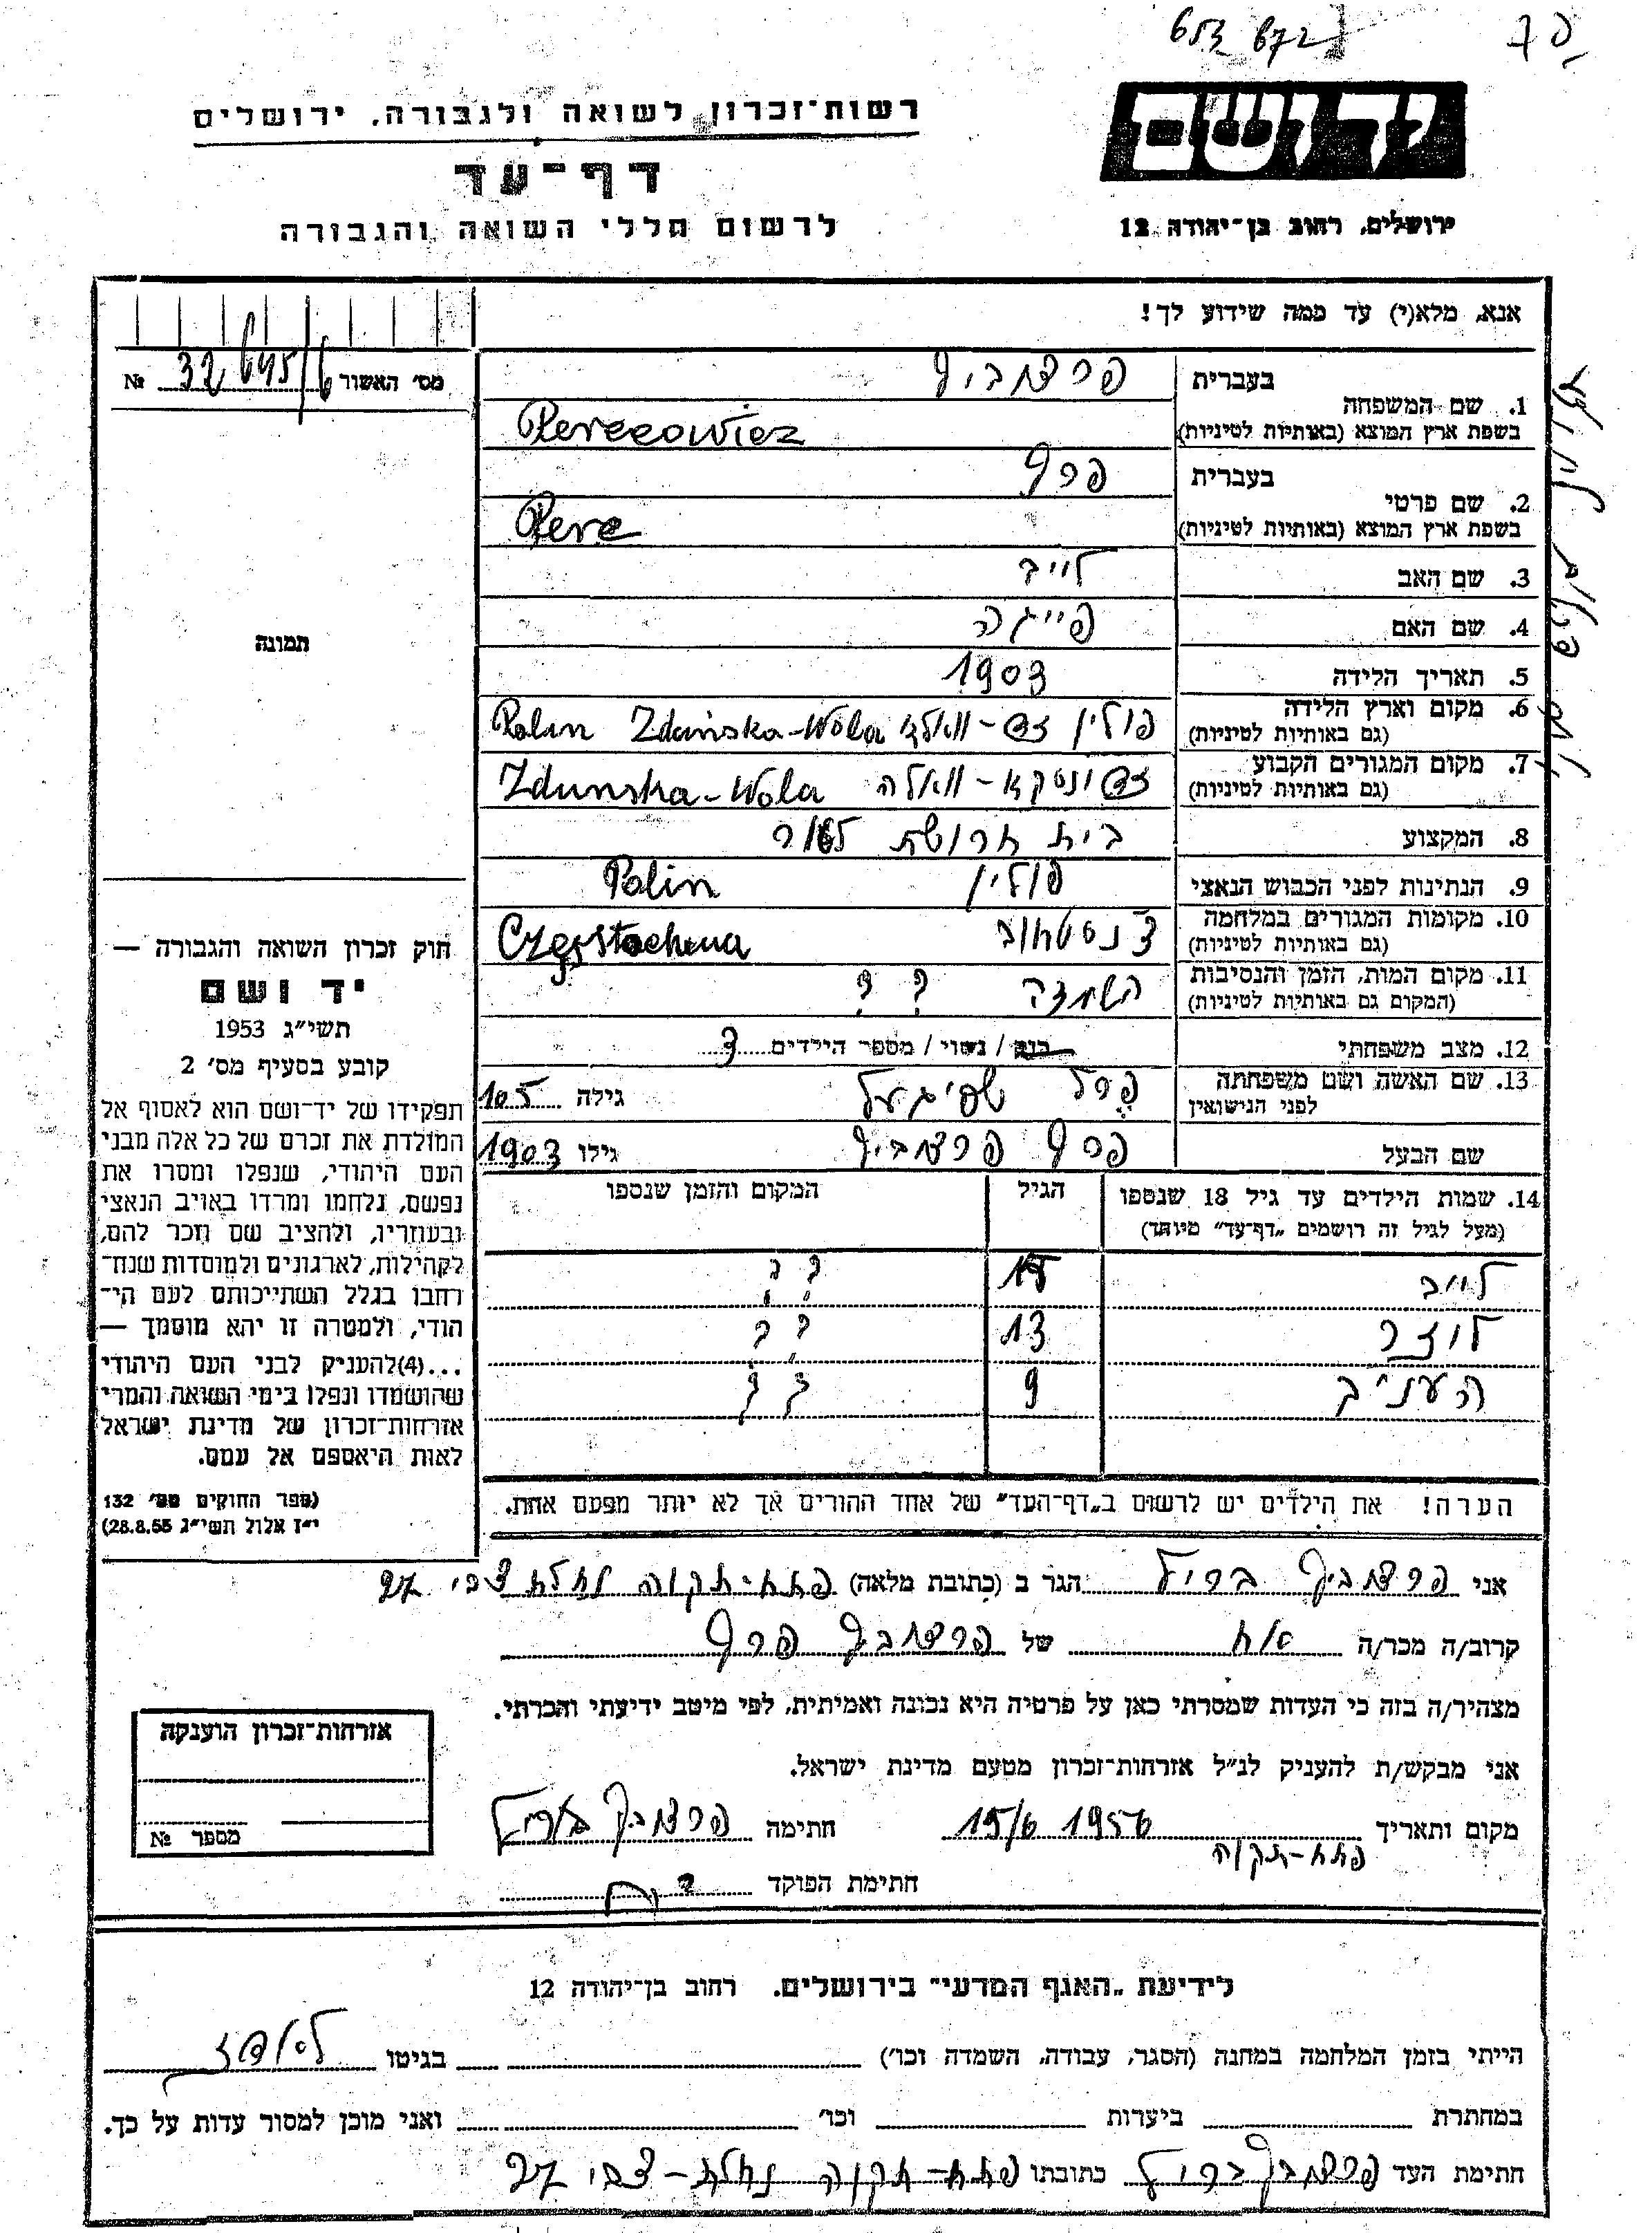 653 672
יד ושם
רשות־זכרון לשואה ולגבורה, ירושלים
דף־עד
לרשום חללי השואה והגבורה
ירושלים, רחוב בן־יהודה 12
אנא, מלא(י) עד כמה שידוע לך!
מס׳ האשור 32695/6 №
1. שם המשפחה
בעברית פרצוביץ
בשפת ארץ המוצא (באותיות לטיניות) Perecowicz
2. שם פרטי
בעברית פרץ
בשפת ארץ המוצא (באותיות לטיניות) Perec
3. שם האב לייב
4. שם האם פייגה
5. תאריך הלידה 1903
6. מקום וארץ הלידה
(גם באותיות לטיניות) פולין Zdańska-Wola Polin
7. מקום המגורים הקבוע
(גם באותיות לטיניות) זדונסקא-וואלה Zdunska-Wola
8. המקצוע בית חרושת
9. הנתינות לפני הכבוש הנאצי פולין Polin
10. מקומות המגורים במלחמה
(גם באותיות לטיניות) צנסטחוב Częstochowa
11. מקום המות, הזמן והנסיבות
(המקום גם באותיות לטיניות) השמדה ? ?
12. מצב משפחתי רווק / נשוי / מספר הילדים 3
13. שם האשה ושם משפחתה
לפני הנישואין פרל שפיגעל גילה 105
שם הבעל פרץ פרצוביץ גילו 1903
14. שמות הילדים עד גיל 18 שנספו
(מעל לגיל זה רושמים „דף־עד״ מיוחד)
הגיל
המקום והזמן שנספו
לייב 15 ? ?
לוזר 13 ? ?
העניך 9 ? ?
הערה! את הילדים יש לרשום ב„דף־העד״ של אחד ההורים אך לא יותר מפעם אחת.
תמונה
חוק זכרון השואה והגבורה —
יד ושם
תשי״ג 1953
קובע בסעיף מס׳ 2
תפקידו של יד־ושם הוא לאסוף אל
המולדת את זכרם של כל אלה מבני
העם היהודי, שנפלו ומסרו את
נפשם, נלחמו ומרדו באויב הנאצי
ובעוזריו, ולהציב שם וזכר להם,
לקהילות, לארגונים ולמוסדות שנח־
רבו בגלל השתייכותם לעם הי־
הודי, ולמטרה זו יהא מוסמך —
...(4) להעניק לבני העם היהודי
שהושמדו ונפלו בימי השואה והמרי
אזרחות־זכרון של מדינת ישראל
לאות היאספם אל עמם.
(ספר החוקים מס׳ 132
י״ז אלול תשי״ג 28.8.53)
אני פרצוביץ בריל הגר ב (כתובת מלאה) פתח-תקוה נחלת צבי 27
קרוב/ה מכר/ה אח של פרצוביץ פרץ
מצהיר/ה בזה כי העדות שמסרתי כאן על פרטיה היא נכונה ואמיתית, לפי מיטב ידיעתי והכרתי.
אני מבקש/ת להעניק לנ״ל אזרחות־זכרון מטעם מדינת ישראל.
מקום ותאריך 15/6 1956 חתימה פרצוביץ בריל
פתח-תקוה
חתימת הפוקד
אזרחות־זכרון הוענקה
מספר №
לידיעת „האגף המדעי״ בירושלים, רחוב בן־יהודה 12
הייתי בזמן המלחמה במחנה (הסגר, עבודה, השמדה וכו׳) בגיטו לאדז
במחתרת ביערות וכו׳ ואני מוכן למסור עדות על כך.
חתימת העד פרצוביץ בריל כתובתו פתח-תקוה נחלת-צבי 27